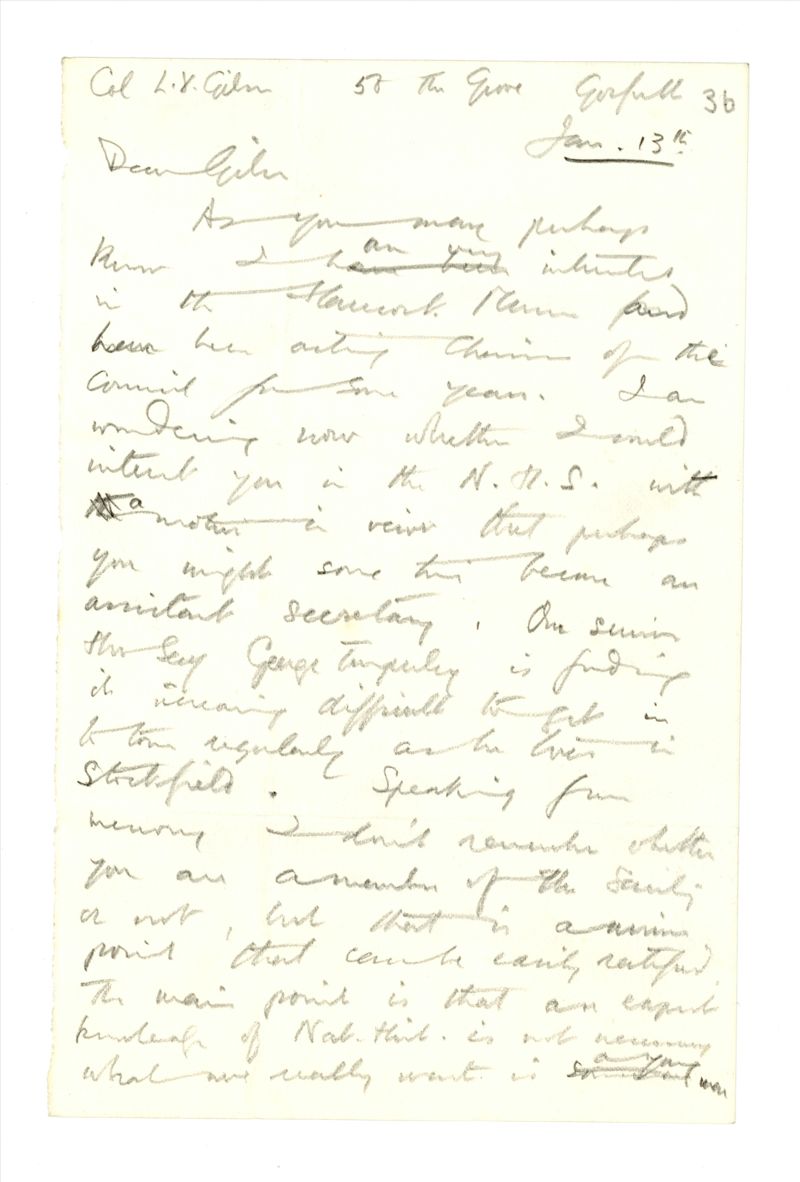 Col L. G. 50 The Grove Gosforth 36
Jan. 13th
Dear
As you may perhaps
know I have been am very interested
in the Hancock Museum and
have been acting Chairman of the
Council for some years. I am
wondering now whether I could
interest you in the N.H.S. with
a motive in view that perhaps
you might some time become an
assistant secretary. Our senior
Hon Secy George Temperley is finding
it increasing difficult to get in
to town regularly as he lives in
Stocksfield. Speaking from
memory I don't remember whether
you are a member of the Society
or not, but that is a minor
point that can be easily rectified
The main point is that an expert
knowledge of Nat. Hist. is not necessary
what we really want is a young man